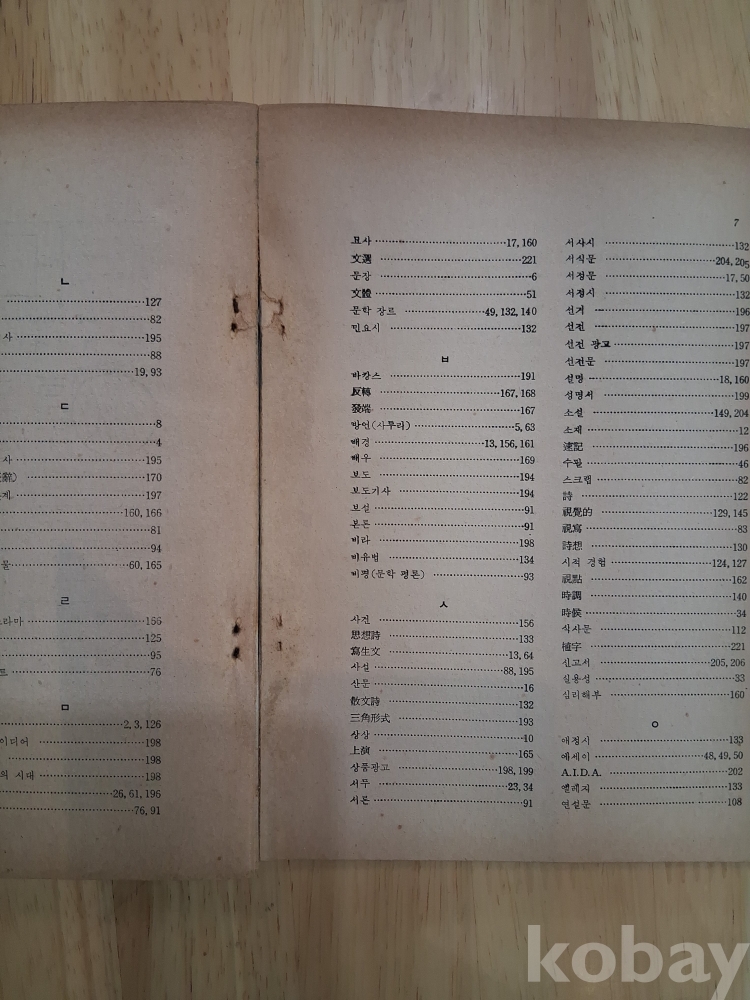 ㄴ
127
82
사 195
88
19, 93
ㄷ
8
4
사 195
辭) 170
197
160, 166
81
94
물 60, 165
ㄹ
드라마 156
125
95
트 76
ㅁ
2, 3, 126
이디어 198
198
의 시대 198
26, 61, 196
76, 91
7
묘사 17, 160
文選 221
문장 6
文體 51
문학 장르 49, 132, 140
민요시 132
ㅂ
바캉스 191
反轉 167, 168
發端 167
방언(사투리) 5, 63
배경 13, 156, 161
배우 169
보도 194
보도기사 194
보설 91
본론 91
비라 198
비유법 134
비평(문학 평론) 93
ㅅ
사건 156
思想詩 133
寫生文 13, 64
사설 88, 195
산문 16
散文詩 132
三角形式 193
상상 10
上演 165
상품광고 198, 199
서두 23, 34
서론 91
서사시 132
서식문 204, 205
서정문 17, 50
서정시 132
선거 196
선전 197
선전 광고 197
선전문 197
설명 18, 160
성명서 199
소설 149, 204
소재 12
速記 196
수필 46
스크랩 82
詩 122
視覺的 129, 145
視寫 83
詩想 130
시적 경험 124, 127
視點 162
時調 140
時候 34
식사문 112
植字 221
신고서 205, 206
실용성 33
심리해부 160
ㅇ
애정시 133
에세이 48, 49, 50
A.I.D.A. 202
엘레지 133
연설문 108
kobay